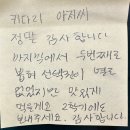 키다리 아저씨
정말 감사합니다
마지막에서 두번째로
뽑혀 선택권이 별로
없었지만 맛있게
먹을게요 2학기에도
보내주세요. 감사합니다